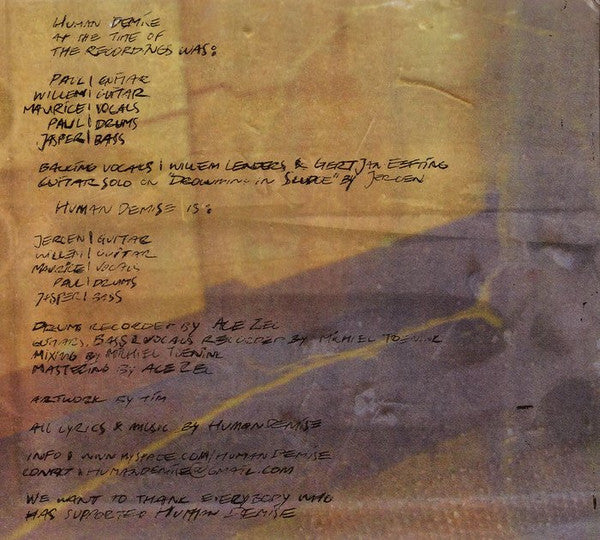 HUMAN DEMISE
AT THE TIME OF
THE RECORDINGS WAS:
PAUL | GUITAR
WILLEM | GUITAR
MAURICE | VOCALS
PAUL | DRUMS
JASPER | BASS
BACKING VOCALS | WILLEM LENDERS & GERT JAN EEFTING
GUITAR SOLO ON "DROWNING IN SLUDGE" BY JEROEN
HUMAN DEMISE IS:
JEROEN | GUITAR
WILLEM | GUITAR
MAURICE | VOCALS
PAUL | DRUMS
JASPER | BASS
DRUMS RECORDED BY ACE ZEC
GUITARS, BASS & VOCALS RECORDED BY MICHIEL
MIXING BY MICHIEL
MASTERING BY ACE ZEC
ARTWORK BY TIM
ALL LYRICS & MUSIC BY HUMAN DEMISE
INFO: WWW.MYSPACE.COM/HUMANDEMISE
CONTACT: HUMANDEMISE@GMAIL.COM
WE WANT TO THANK EVERYBODY WHO
HAS SUPPORTED HUMAN DEMISE